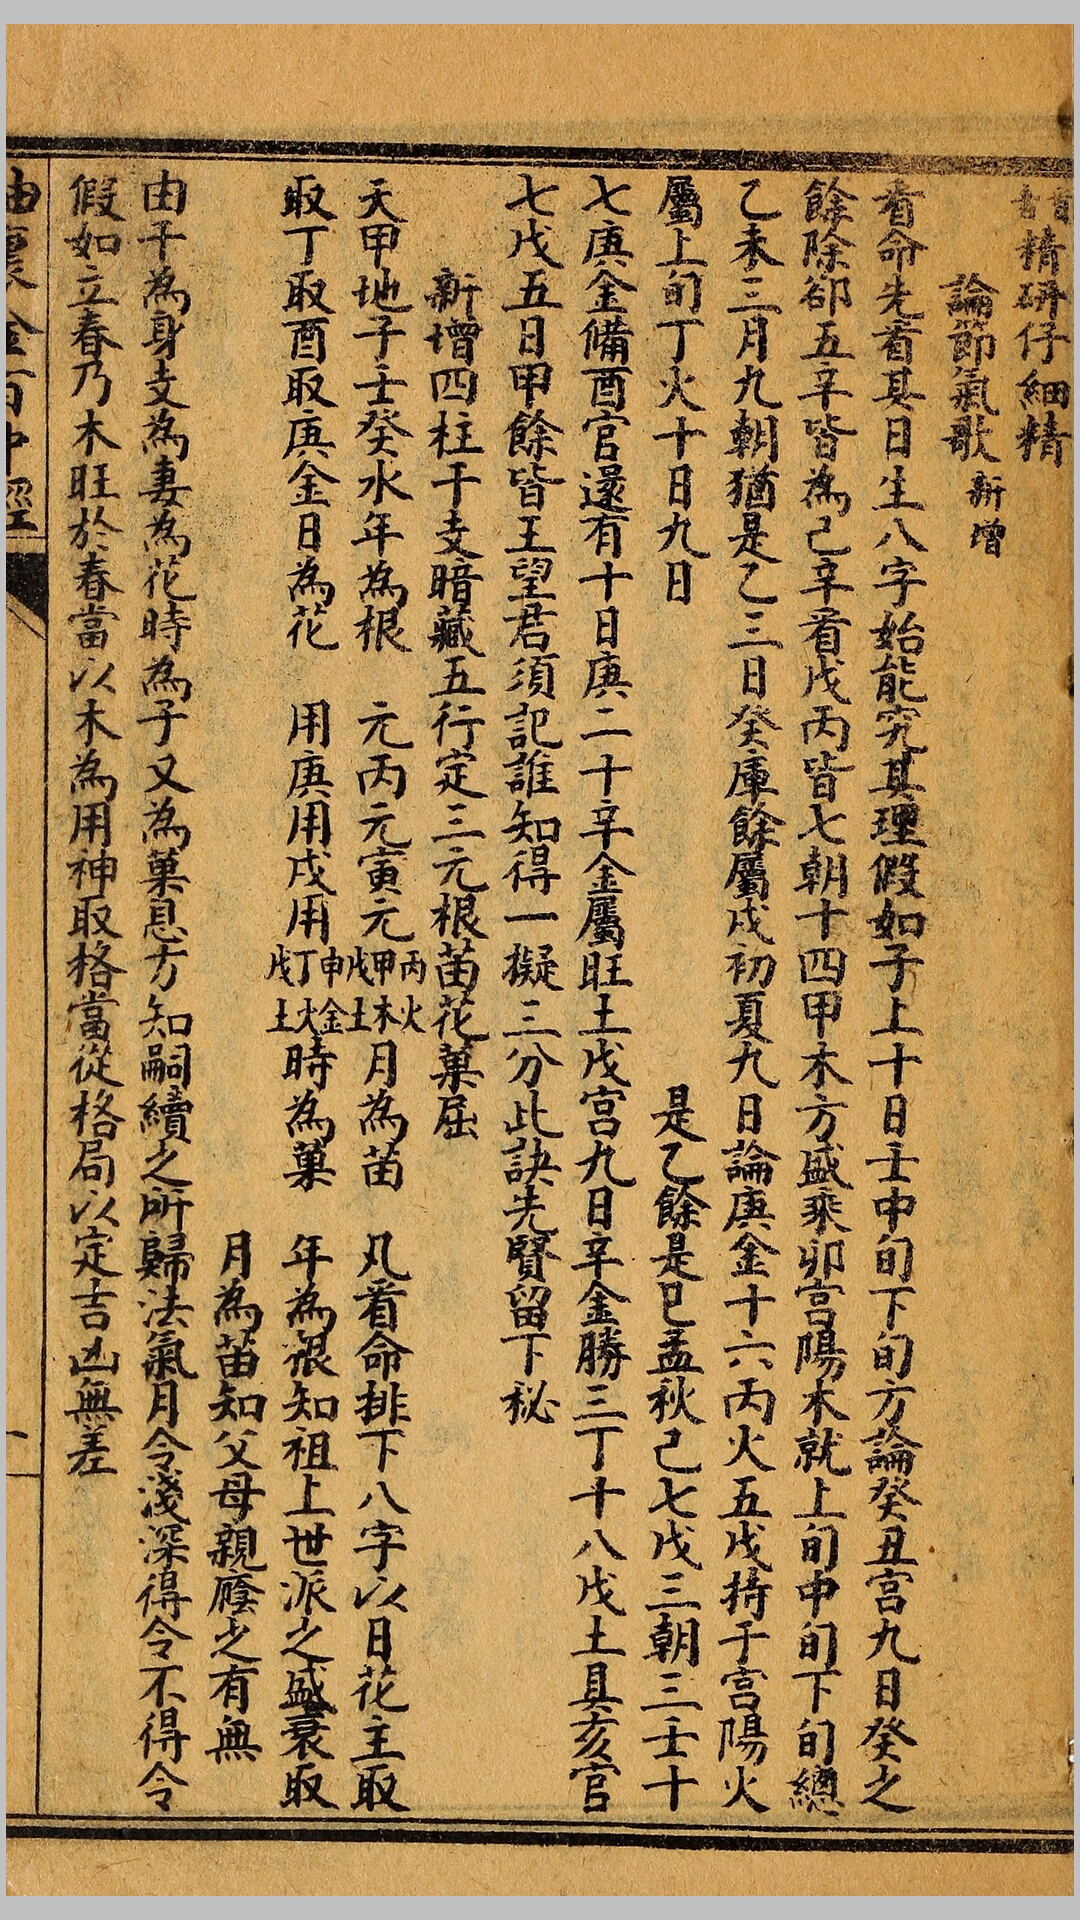 精研仔細精
論節氣歌 新增
看命先看其日生八字始能究其理假如子上十日壬中旬下旬方論癸丑宫九日癸之
餘除卻五辛皆為己辛看戊丙皆七朝十四甲木方盛乘卯宫陽木就上旬中旬下旬總
乙未三月九朝猶是乙三日癸庫餘屬戊初夏九日論庚金十六丙火五戊持于宫陽火
屬上旬丁火十日九日 是乙餘是已孟秋己七戊三朝三壬十
七庚金備酉官還有十日庚二十辛金屬旺土戊宫九日辛金勝三丁十八戊土具亥官
七戊五日甲餘皆王望君須記誰知得一擬三分此訣先賢留下秘
新增四柱干支暗藏五行定三元根苗花菓屈
天甲地子壬癸水年為根 元丙元寅元丙火甲木戊土月為苗 凡看命排下八字以日花主取
取丁取酉取庚金日為花 用庚用戌用申金丁火戊土時為菓 年為根知祖上世派之盛衰取
月為苗知父母親廕之有無
由干為身支為妻為花時為子又為菓息方知嗣續之所歸法氣月令淺深得令不得令
假如立春乃木旺於春當以木為用神取格當從格局以定吉凶無差